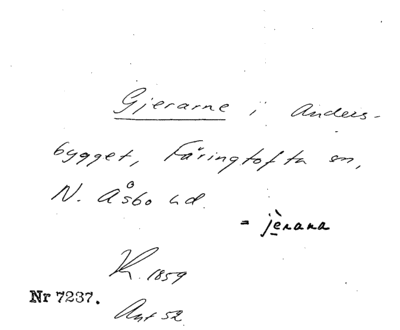 Gjerarne i Anders-
bygget, Färingtofta sn,
N. Åsbo hd.
= jèrara
K. 1859
Nr 7237.
Ant 52